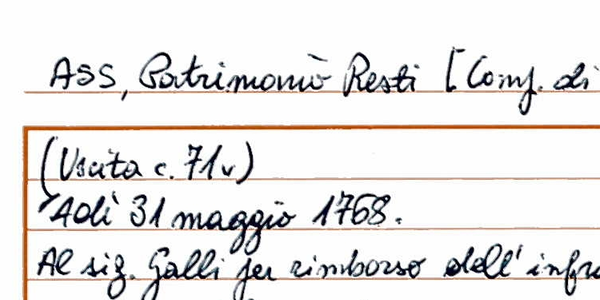 ASS, Patrimonio Resti [Conf. di
(Uscita c. 71v)
"Adì 31 maggio 1768.
Al sig. Galli per rimborso dell'infra